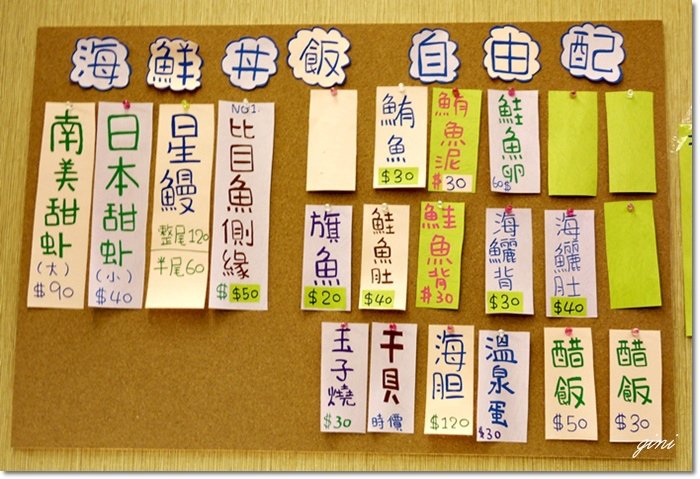 海鮮丼飯 自由配
南美甜虾
(大)
$90
日本甜虾
(小)
$40
星鰻
整尾120
半尾60
NO.1
比目魚側緣
$50
鮪魚
$30
鮪魚泥
$30
鮭魚卵
60$
旗魚
$20
鮭魚肚
$40
鮭魚背
$30
海鱺背
$30
海鱺肚
$40
玉子燒
$30
干貝
時價
海胆
$120
溫泉蛋
$30
醋飯
$50
醋飯
$30
yini